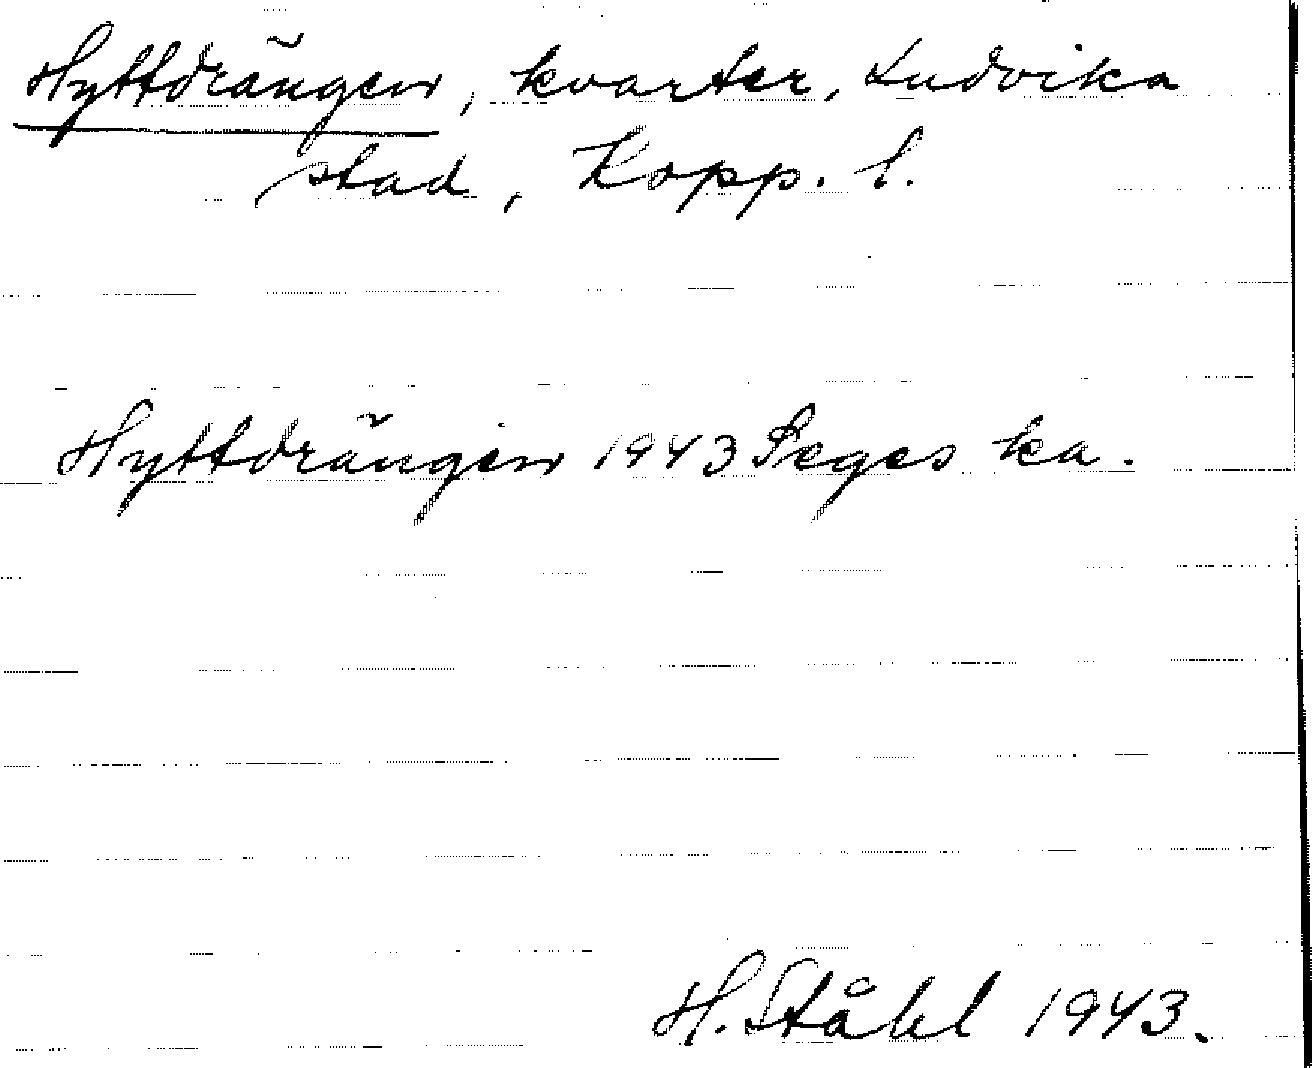 Hyttdrängen, kvarter, Ludvika
stad, Kopp. l.
Hyttdrängen 1943 Seges ka.
H. Ståhl 1943.